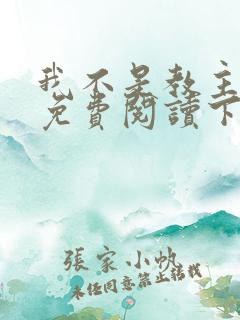 我不是教主
免費閱讀下
張家小帆
未经同意禁止转载